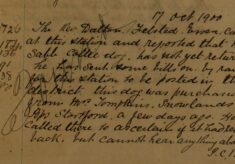 17 Oct 1900
The Rev Dalton, Felsted Essex, ca
at this station and reported that
Sable Collie dog, has not yet retur
he has sent some bills by ra
for this station to be posted in the
district, this dog was purchase
from Mr Tompkins, Snowlands
Bps Stortford, a few days ago. He
called there to ascertain if it had ret
back, but cannot hear anything abo